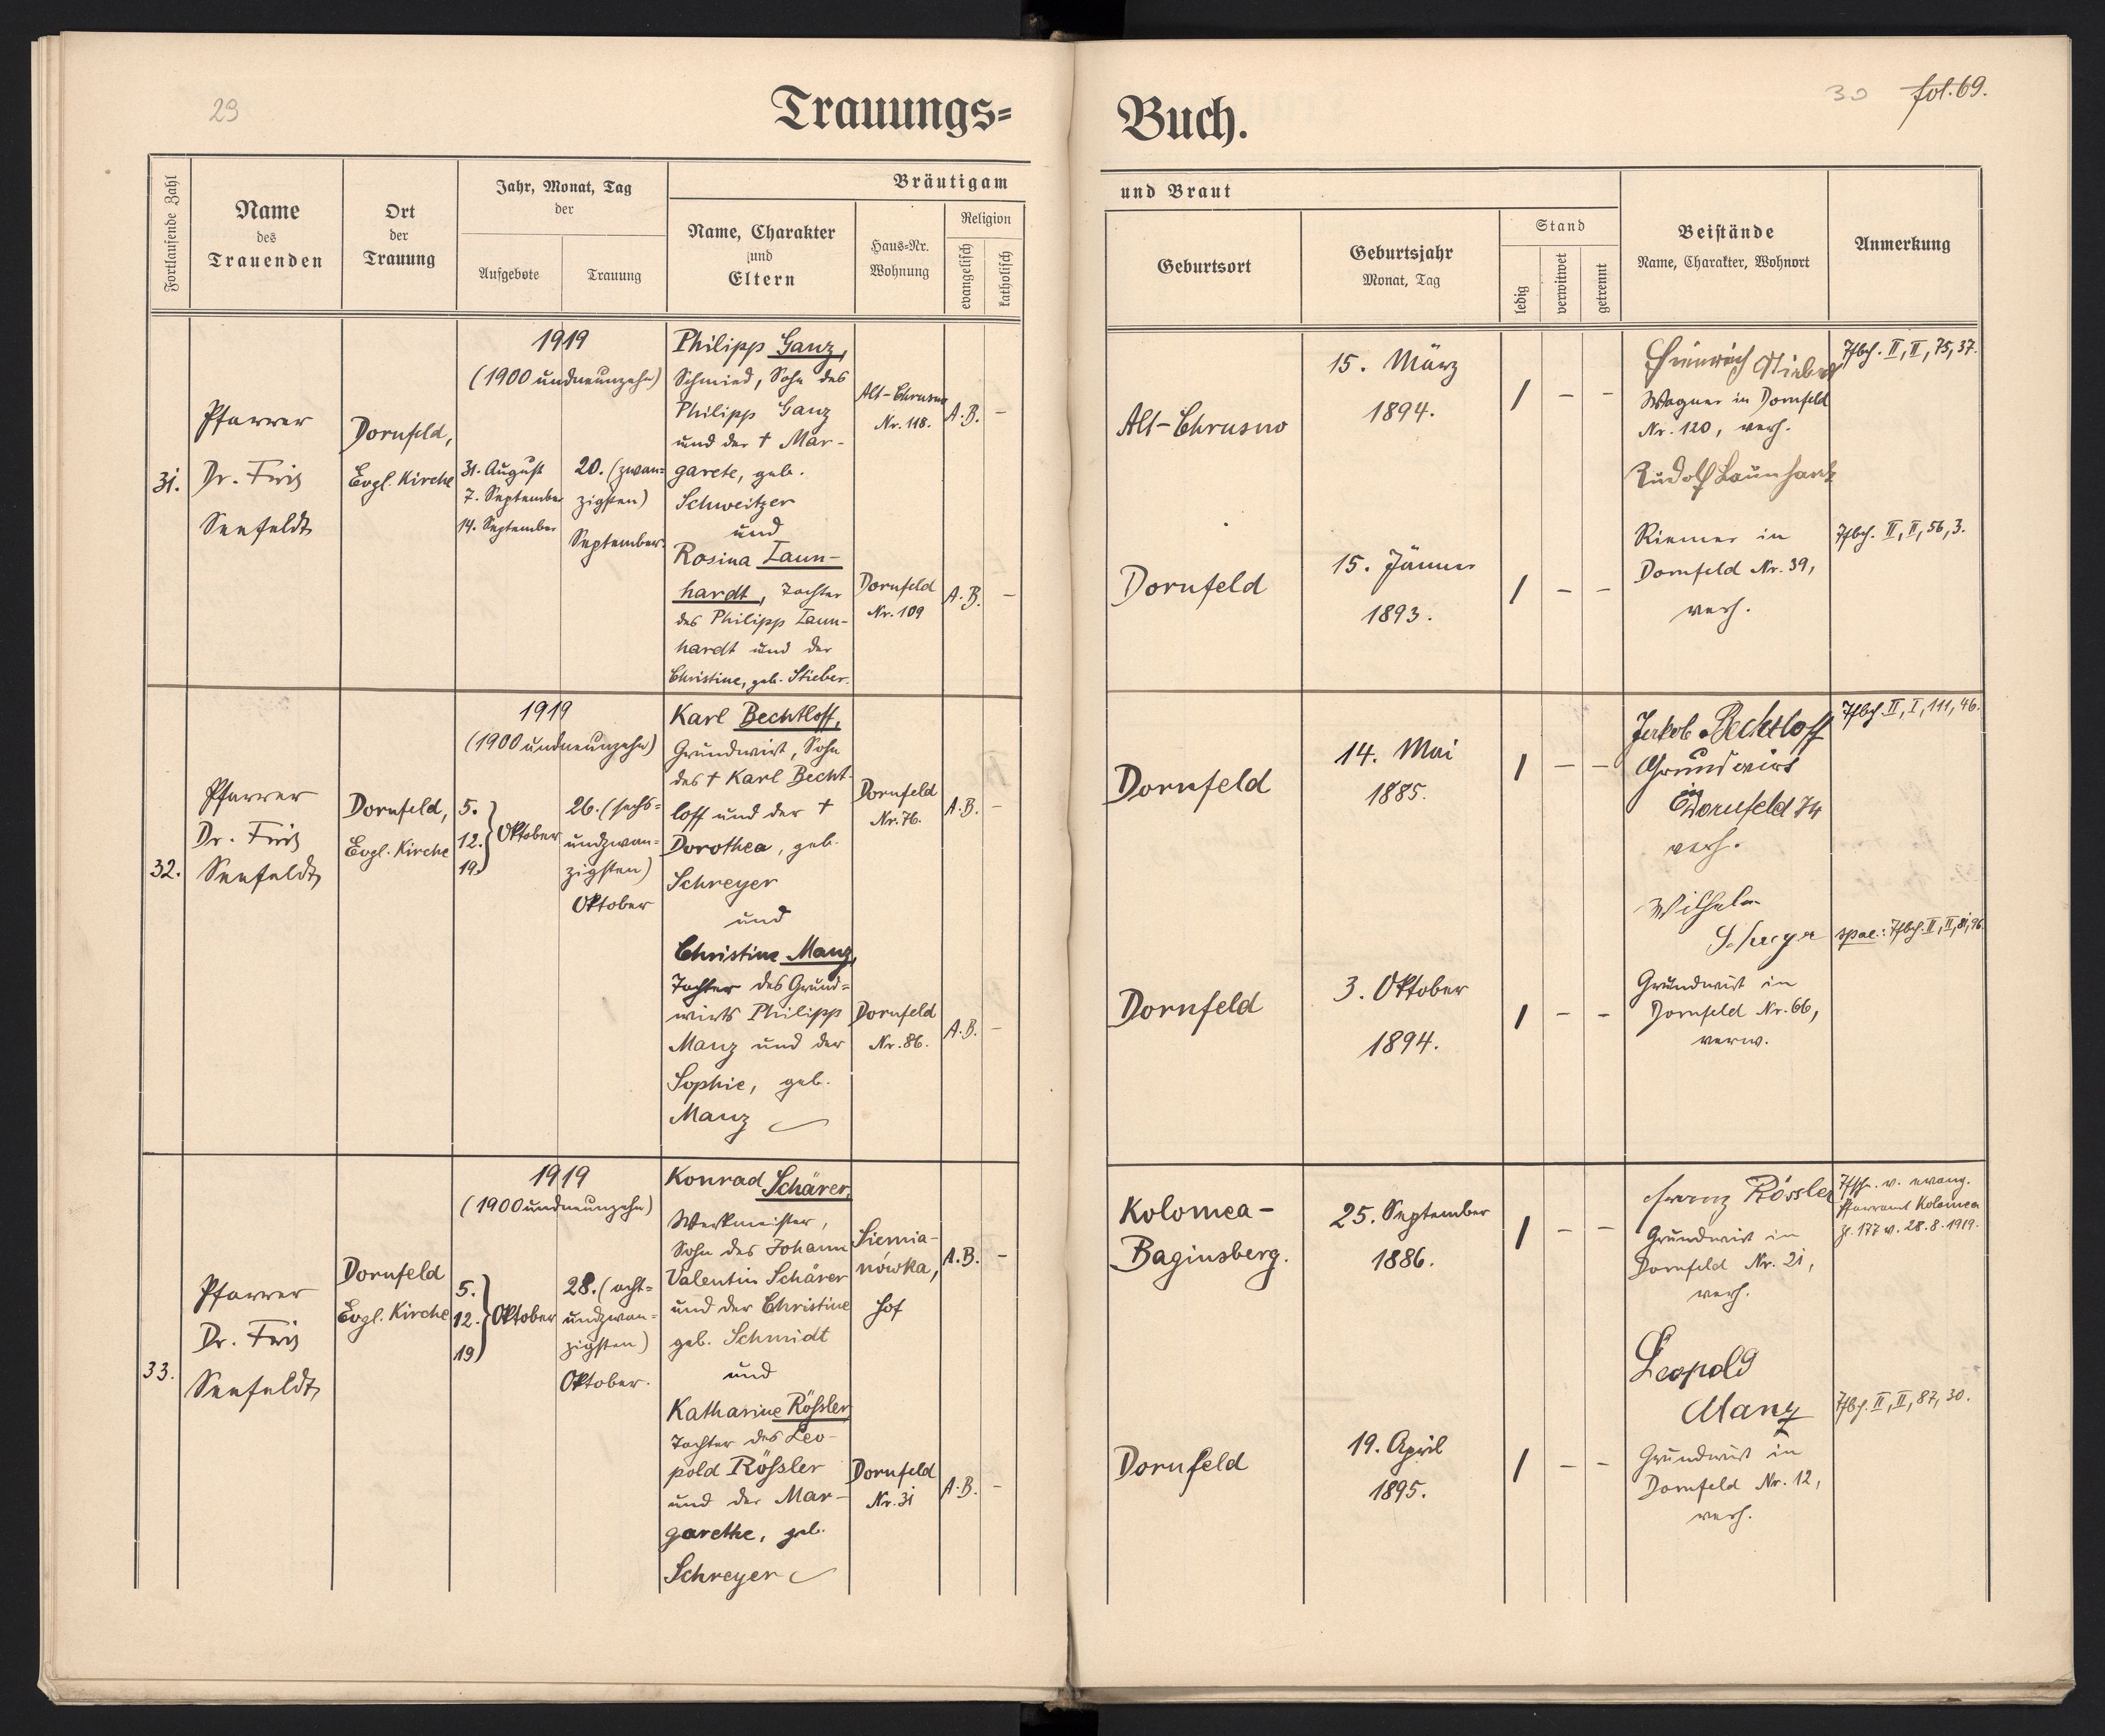 29
Trauungs=
Fortlaufende Zahl
Name
des
Trauenden
Ort
der
Trauung
Jahr, Monat, Tag
der
Aufgebote
Trauung
Bräutigam
Name, Charakter
und
Eltern
Haus=Nr.
Wohnung
Religion
evangelisch
katholisch
31.
Pfarrer
Dr. Fritz
Seefeldt
Dornfeld,
Evgl. Kirche
1919
(1900 undneunzehn)
31. August
7. September
14. September
20. (zwan=
zigsten)
September.
Philipp Ganz,
Schmied, Sohn des
Philipp Ganz
und der † Mar-
garete, geb.
Schweitzer
und
Rosina Laun-
hardt, Tochter
des Philipp Laun-
hardt und der
Christine, geb. Stieber.
Alt-Chrusno
Nr. 118.
A.B.
–
Dornfeld
Nr. 109
A.B.
–
32.
Pfarrer
Dr. Fritz
Seefeldt
Dornfeld,
Evgl. Kirche
1919
(1900 undneunzehn)
5.
12. } Oktober
19.
26. (sechs=
undzwan=
zigsten)
Oktober
Karl Bechtloff,
Grundwirt, Sohn
des † Karl Becht-
loff und der †
Dorothea, geb.
Schreyer
und
Christine Manz,
Tochter des Grund=
wirts Philipp
Manz und der
Sophie, geb.
Manz
Dornfeld
Nr. 76.
A.B.
–
Dornfeld
Nr. 86.
A.B.
–
33.
Pfarrer
Dr. Fritz
Seefeldt
Dornfeld
Evgl. Kirche
1919
(1900 undneunzehn)
5.
12. } Oktober
19
28. (acht=
undzwan=
zigsten)
Oktober.
Konrad Schärer,
Werkmeister,
Sohn des Johann
Valentin Schärer
und der Christine
geb. Schmidt
und
Katharine Rößler,
Tochter des Leo-
pold Rößler
und der Mar-
garethe, geb.
Schreyer
Siemia-
nówka,
Hof
A.B.
–
Dornfeld
Nr. 31
A.B.
–
Buch.
30 fol. 69.
und Braut
Geburtsort
Geburtsjahr
Monat, Tag
Stand
ledig
verwitwet
getrennt
Beistände
Name, Charakter, Wohnort
Anmerkung
Alt-Chrusno
15. März
1894.
/ – –
Heinrich Stieber
Wagner in Dornfeld
Nr. 120, verh.
Rudolf Launhardt
Riemer in
Dornfeld Nr. 39,
verh.
Tfbch. II, II, 75, 37.
Dornfeld
15. Jänner
1893.
/ – –
Tfbch. II, II, 56, 3.
Dornfeld
14. Mai
1885.
/ – –
Jakob Bechtloff
Grundwirt
in
Dornfeld 74
verh.
Wilhelm
Schreyer
Grundwirt in
Dornfeld Nr. 66,
verw.
Tfbch. II, I, 111, 46.
Dornfeld
3. Oktober
1894.
/ – –
Tfbch. II, II, 81, 96.
Kolomea-
Baginsberg.
25. September
1886.
/ – –
Franz Rössler
Grundwirt in
Dornfeld Nr. 21,
verh.
Leopold
Manz
Grundwirt in
Dornfeld Nr. 12,
verh.
Tfsch. v. evang.
Pfarramt Kolomea
Z. 177 v. 28.8.1919.
Dornfeld
19. April
1895.
/ – –
Tfbch. II, II, 87, 30.